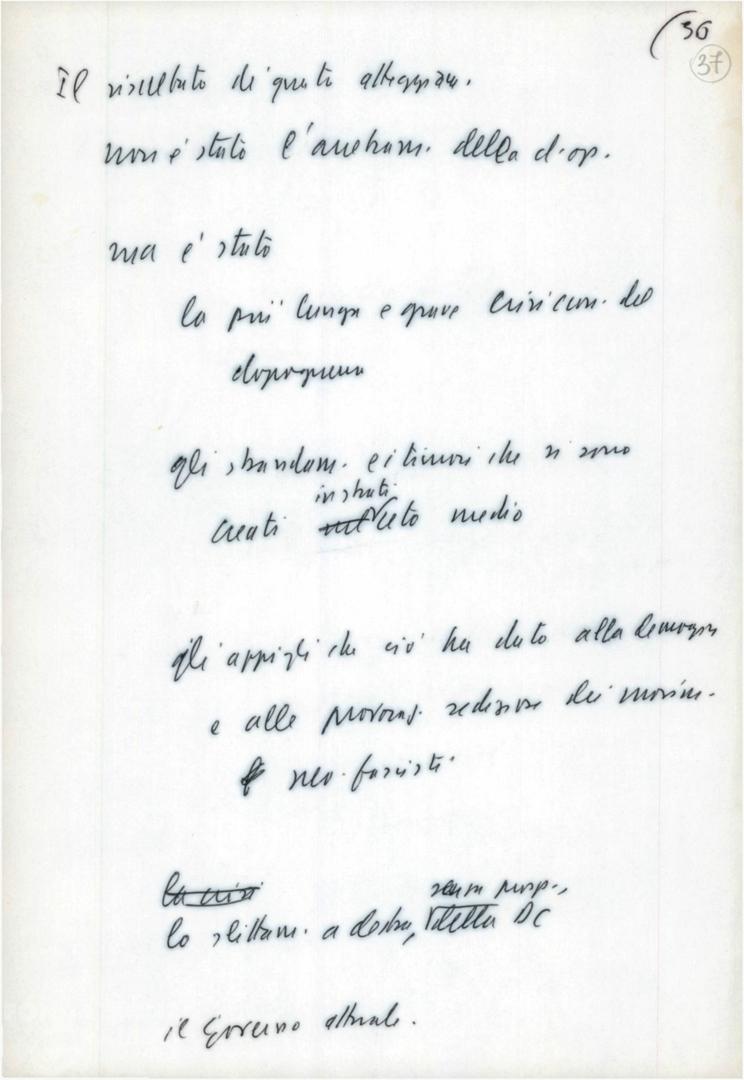 36
37
Il risultato di questo atteggiam.
non è stato l'arretram. della d. op.
ma è stato
la più lunga e grave crisi econ. del
dopoguerra
gli sbandam. e i timori che si sono
in strati
creati nel ceto medio
gli appigli che ciò ha dato alla demagogia
e alle provocaz. sediziose dei movim.
neo-fascisti
la crisi
senza prosp.,
lo slittam. a destra, della DC
il Governo attuale.